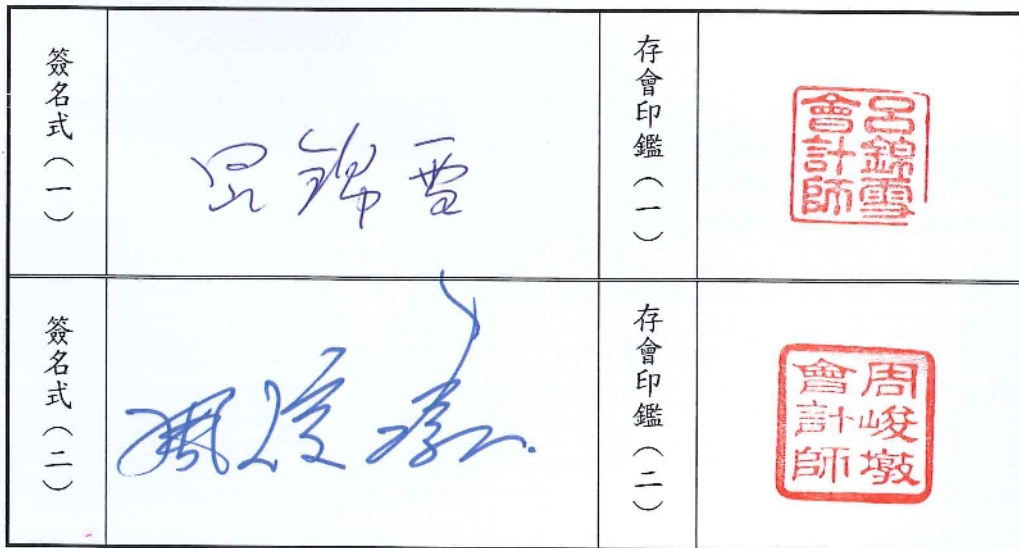 簽名式（一）
呂錦雪
存會印鑑（一）
呂錦雪
會計師
簽名式（二）
周峻墩
存會印鑑（二）
周峻墩
會計師